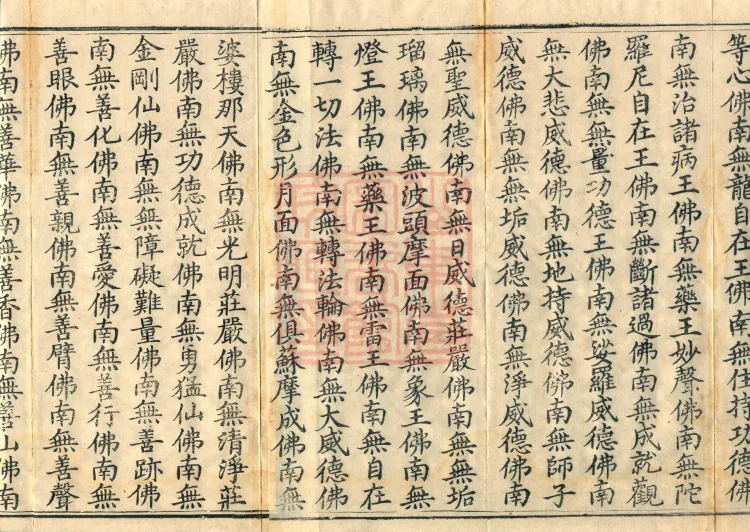 等心佛南無龍自在王佛南無住持功德佛
南無治諸病王佛南無藥王妙聲佛南無陀
羅尼自在王佛南無斷諸過佛南無成就觀
佛南無無量功德王佛南無娑羅威德佛南
無大悲威德佛南無地持威德佛南無師子
威德佛南無無垢威德佛南無淨威德佛南
無聖威德佛南無日威德莊嚴佛南無無垢
瑠璃佛南無波頭摩面佛南無象王佛南無
燈王佛南無藥王佛南無雷王佛南無自在
轉一切法佛南無轉法輪佛南無大威德佛
南無金色形月面佛南無俱蘇摩成佛南無
婆樓那天佛南無光明莊嚴佛南無清淨莊
嚴佛南無功德成就佛南無勇猛仙佛南無
金剛仙佛南無無障礙難量佛南無善跡佛
南無善化佛南無善愛佛南無善行佛南無
善眼佛南無善親佛南無善臂佛南無善聲
佛南無善華佛南無善香佛南無善山佛南